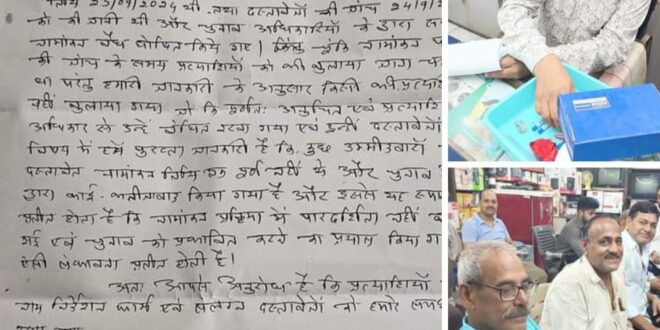 तिथि 23/09/2024 थी, तथा दस्तावेजों की जांच 24/9/2
को की जानी थी और चुनाव अधिकारियों के द्वारा
नामांकन वैध घोषित किये गए। किंतु चूंकि नामांकन
की जांच के समय प्रत्याशियों को भी बुलाया जाना
था परंतु हमारी जानकारी के अनुसार किसी भी प्रत्या
नहीं बुलाया गया जो कि पूर्णतः अनुचित एवं प्रत्याशि
अधिकार से उन्हें वंचित रखा गया एवं इन्हीं दस्तावेजों
विषय में हमें पुख्ता जानकारी है कि कुछ उम्मीदवारों
दस्तावेज नामांकन तिथि तक पूर्ण नहीं थे और चुनाव
द्वारा कोई किया गया है और इससे यह
प्रतीत होता है कि नामांकन प्रक्रिया में पारदर्शिता नहीं
गई एवं चुनाव को प्रभावित करने का प्रयास किया ग
ऐसी संभावना प्रतीत होती है।
अतः आपसे अनुरोध है कि प्रत्याशियों
नाम निर्देशन फार्म एवं संलग्न दस्तावेजों को हमारे समक्ष